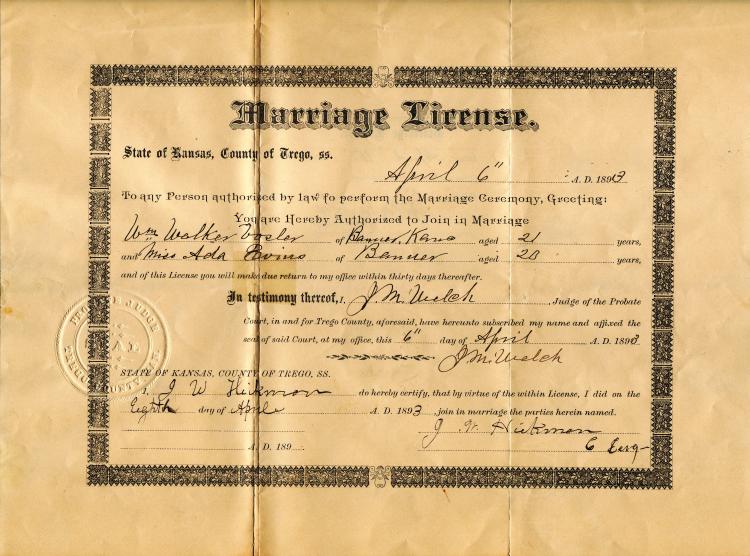 Marriage License.
State of Kansas, County of Trego, ss.
April 6" A. D. 1893
To any Person authorized by law to perform the Marriage Ceremony, Greeting:
You are Hereby Authorized to Join in Marriage
Wm Walker Vosler of Banner, Kans aged 21 years,
and Miss Ada Evins of Banner aged 20 years,
and of this License you will make due return to my office within thirty days thereafter.
In testimony thereof, I, J M. Welch, Judge of the Probate
Court, in and for Trego County, aforesaid, have hereunto subscribed my name and affixed the
seal of said Court, at my office, this 6" day of April A. D. 1893
J M. Welch
STATE OF KANSAS, COUNTY OF TREGO, SS.
I, J W Hickman do hereby certify, that by virtue of the within License, I did on the
Eighth day of Aprile A. D. 1893 join in marriage the parties herein named.
J W Hickman
A. D. 189
JUDGE
SEAL
COUNTY